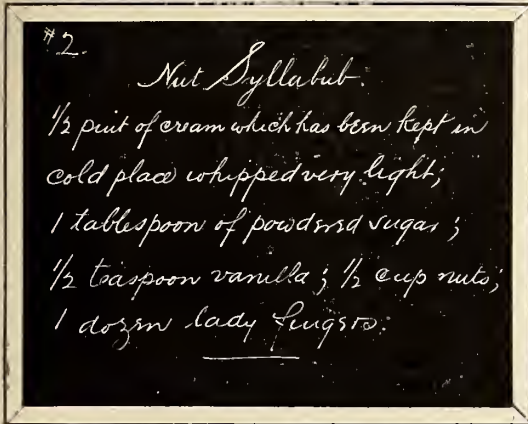 #2.
Nut Syllabub.
1/2 pint of cream which has been kept in
cold place whipped very light;
1 tablespoon of powdered sugar;
1/2 teaspoon vanilla; 1/2 cup nuts;
1 dozen lady fingers.